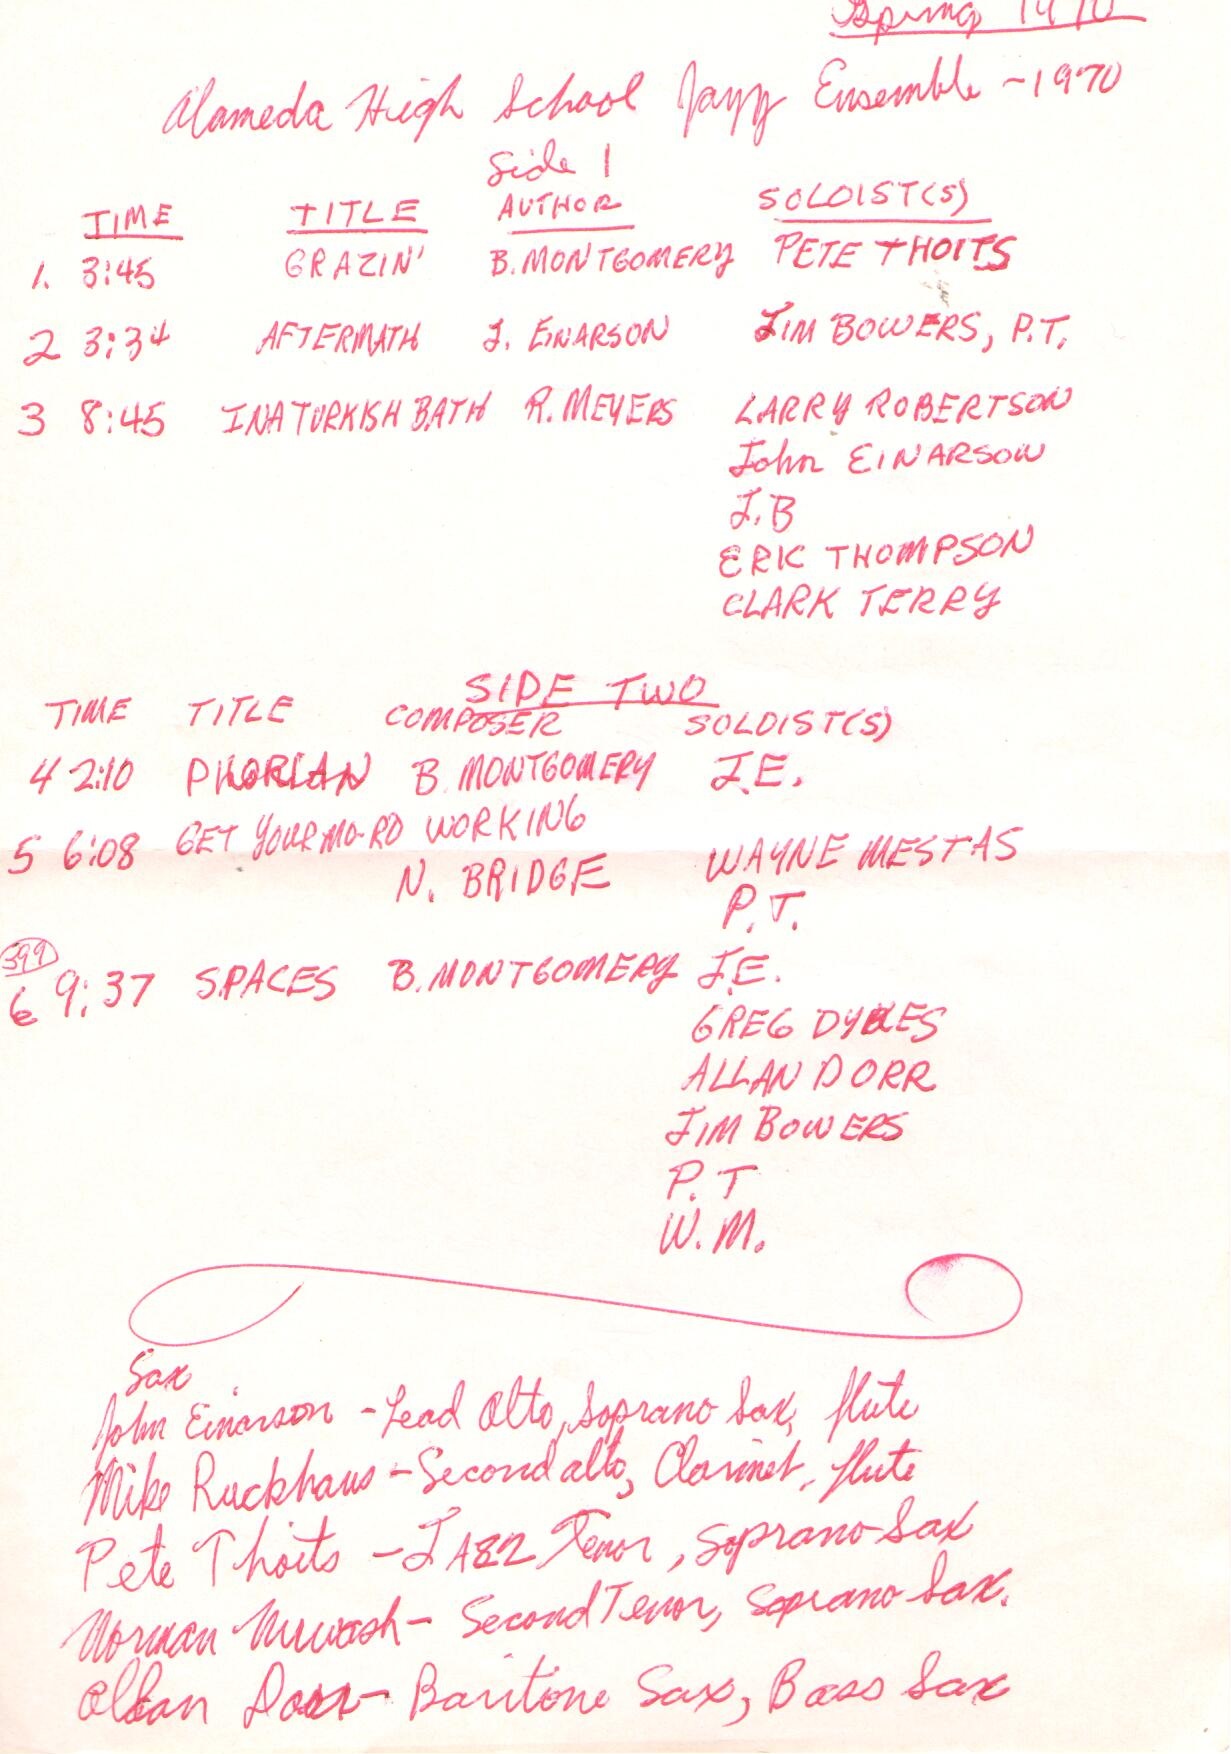 Spring 1970
Alameda High School Jazz Ensemble - 1970
Side 1
TIME TITLE AUTHOR SOLOIST(S)
1. 3:45 GRAZIN' B. MONTGOMERY PETE THOITS
2 3:34 AFTERMATH J. EINARSON JIM BOWERS, P.T.
3 8:45 IN A TURKISH BATH R. MEYERS LARRY ROBERTSON
John EINARSON
J.B
ERIC THOMPSON
CLARK TERRY
SIDE TWO
TIME TITLE COMPOSER SOLOIST(S)
4 2:10 B. MONTGOMERY J.E.
5 6:08 GET YOUR MO-RD WORKING
N. BRIDGE WAYNE MESTAS
P.T.
399
6 9:37 SPACES B. MONTGOMERY J.E.
GREG DYKES
ALLAN DORR
JIM BOWERS
P.T
W.M.
Sax
John Einarson - Lead Alto, Soprano Sax, flute
Mike Ruckhaus - Second alto, Clarinet, flute
Pete Thoits - JAZZ Tenor, Soprano Sax
Norman - Second Tenor, Soprano Sax.
Allan Dorr - Baritone Sax, Bass Sax